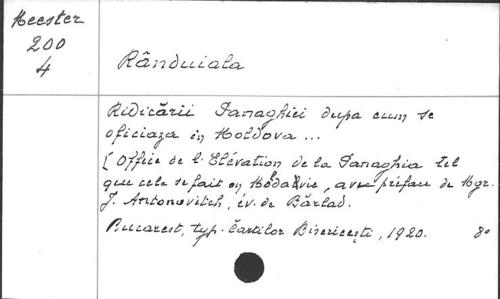 Meester
200
4
Rânduiala
Ridicării Panaghiei dupa cum se
oficiaza in Moldova ...
[Office de l'Elévation de la Panaghia tel
que cela se fait en Modalvie, avec préface de Mgr.
J. Antonovitch, év. de Bârlad.
Bucarest, typ. Cartilor Bisericeşti, 1920. 8°